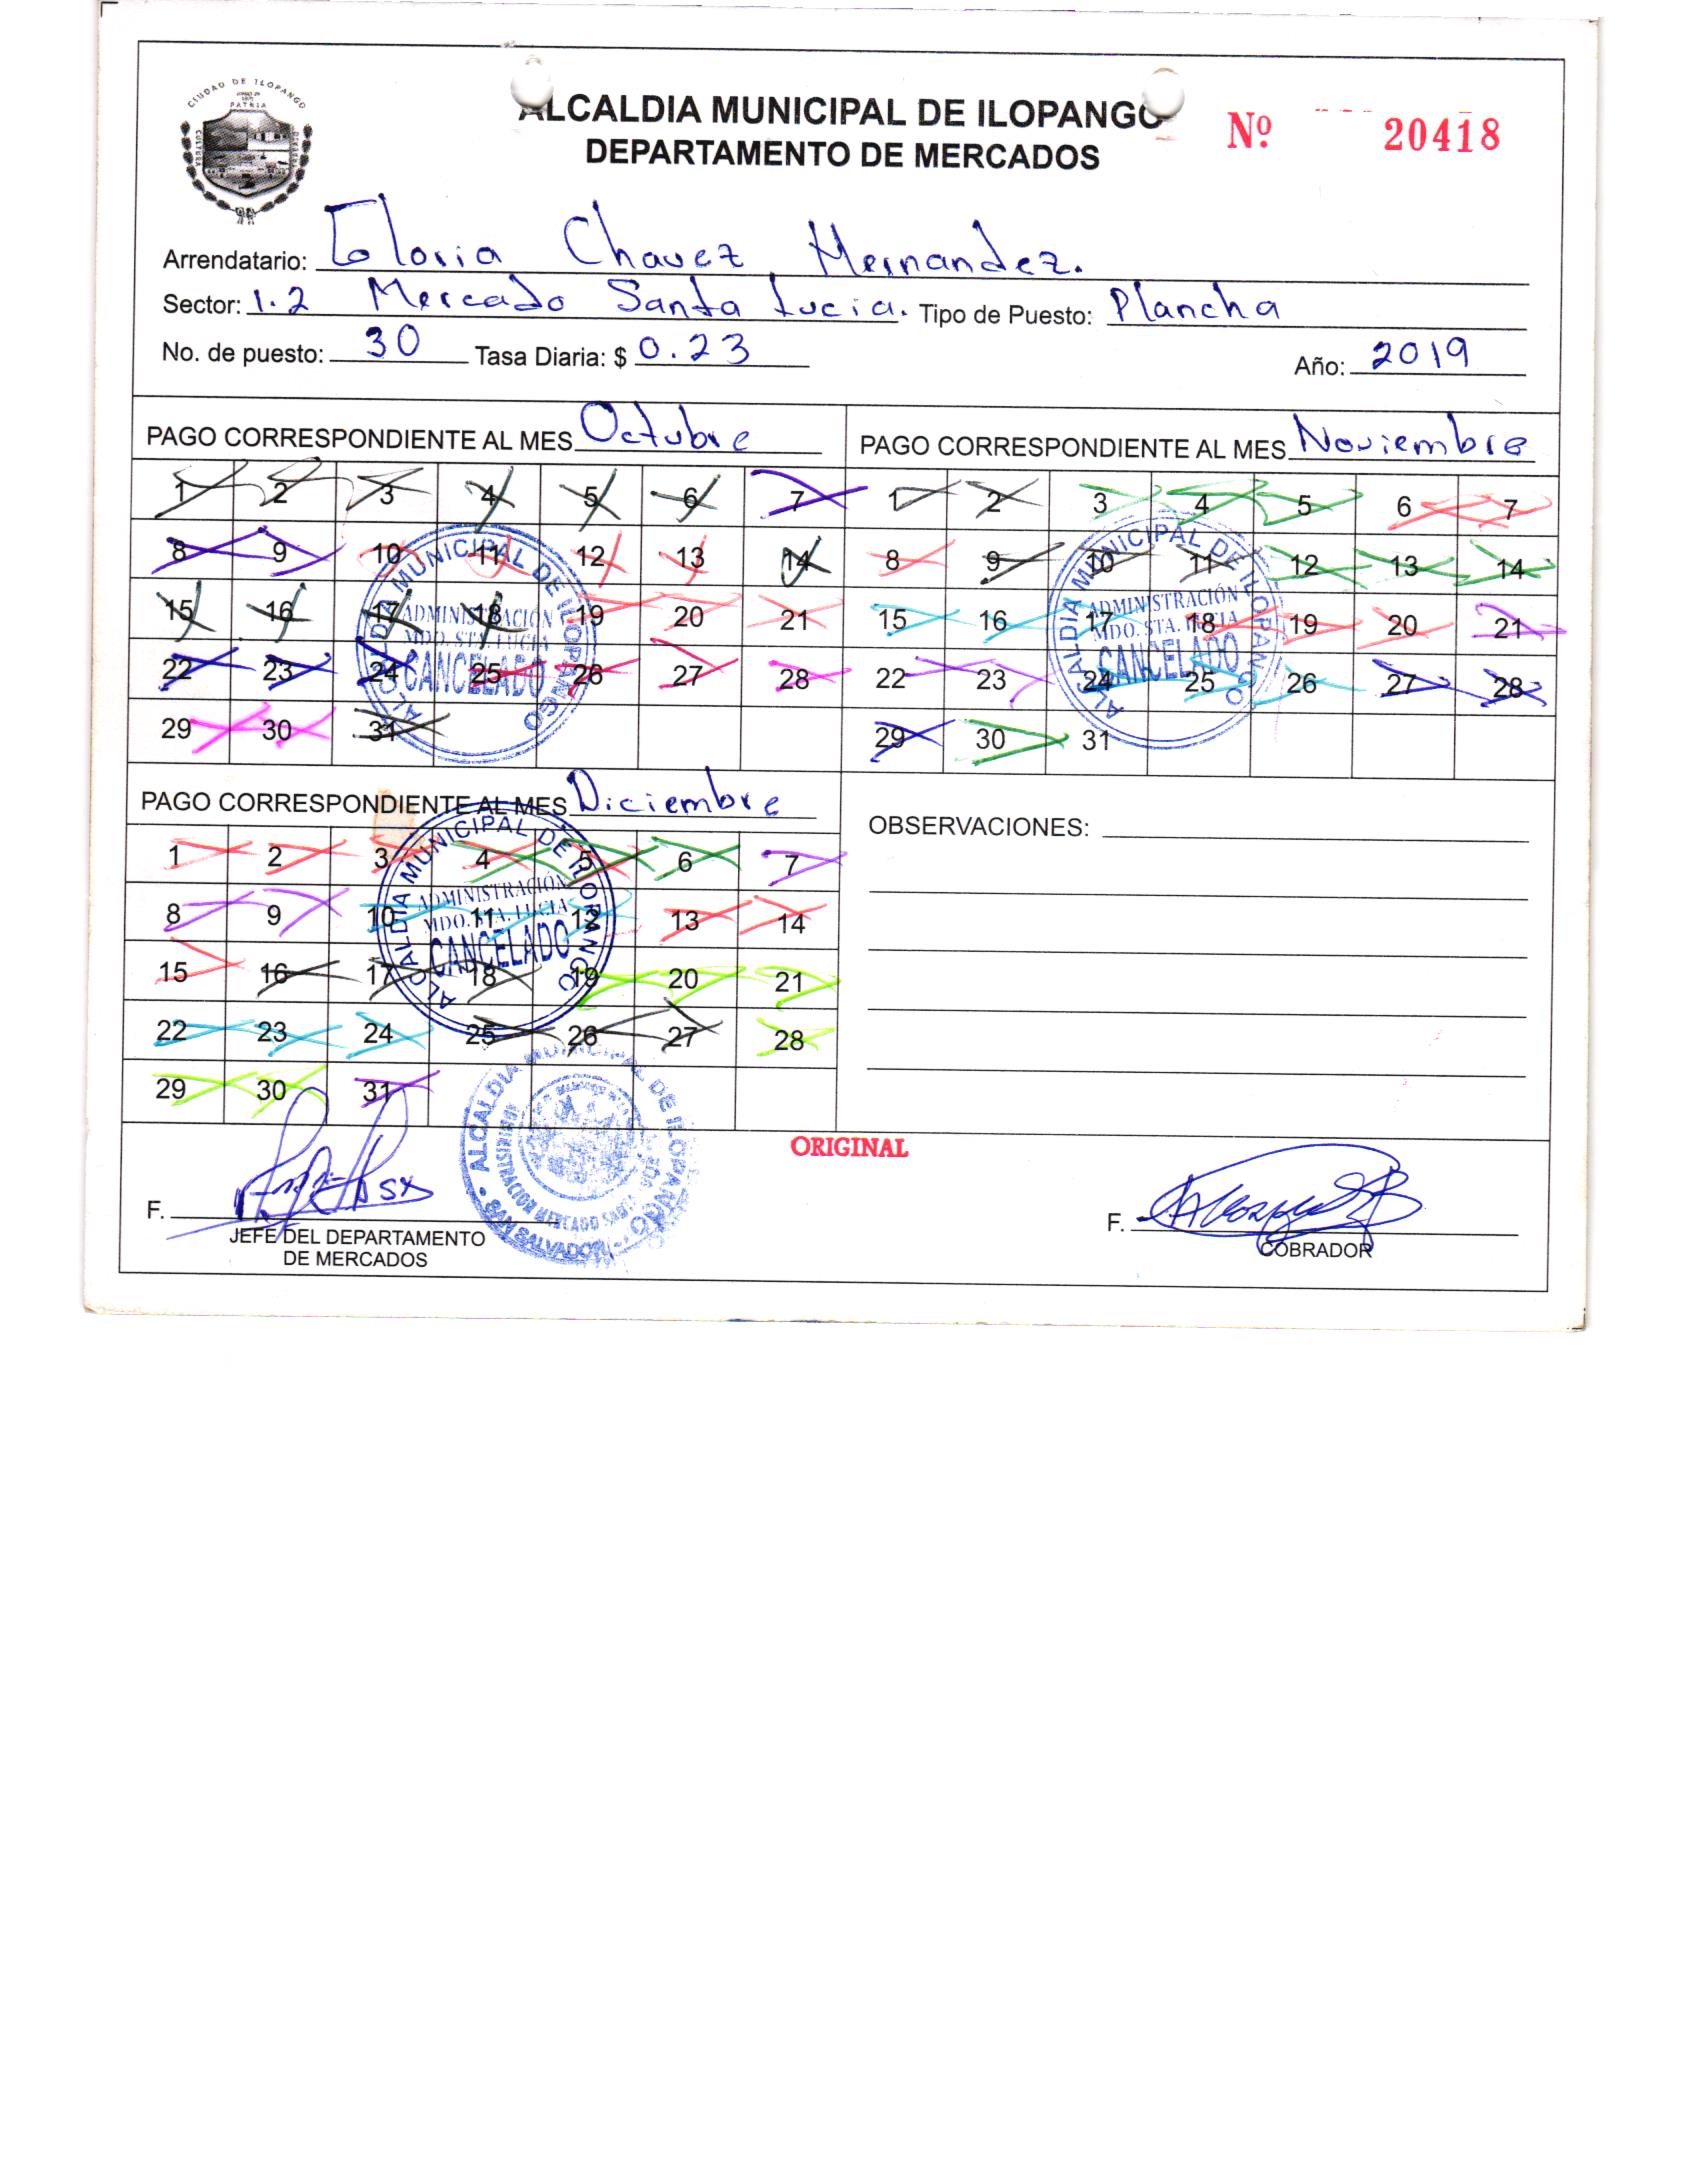 CIUDAD DE ILOPANGO
PATRIA
CULTURA
ALCALDIA MUNICIPAL DE ILOPANGO
DEPARTAMENTO DE MERCADOS
Nº 20418
Arrendatario: Gloria Chavez Hernandez.
Sector: 1.2 Mercado Santa Lucia. Tipo de Puesto: Plancha
No. de puesto: 30 Tasa Diaria: $ 0.23 Año: 2019
PAGO CORRESPONDIENTE AL MES Octubre
1 2 3 4 5 6 7
8 9 10 11 12 13 14
15 16 17 18 19 20 21
22 23 24 25 26 27 28
29 30 31
ALCALDIA MUNICIPAL DE ILOPANGO
ADMINISTRACIÓN
MDO. STA. LUCIA
CANCELADO
PAGO CORRESPONDIENTE AL MES Noviembre
1 2 3 4 5 6 7
8 9 10 11 12 13 14
15 16 17 18 19 20 21
22 23 24 25 26 27 28
29 30 31
ALCALDIA MUNICIPAL DE ILOPANGO
ADMINISTRACIÓN
MDO. STA. LUCIA
CANCELADO
PAGO CORRESPONDIENTE AL MES Diciembre
1 2 3 4 5 6 7
8 9 10 11 12 13 14
15 16 17 18 19 20 21
22 23 24 25 26 27 28
29 30 31
ALCALDIA MUNICIPAL DE ILOPANGO
ADMINISTRACIÓN
MDO. STA. LUCIA
CANCELADO
OBSERVACIONES:
ORIGINAL
ALCALDIA MUNICIPAL DE ILOPANGO
ADMINISTRACION MERCADO
SAN SALVADOR
F.
JEFE DEL DEPARTAMENTO
DE MERCADOS
F.
COBRADOR